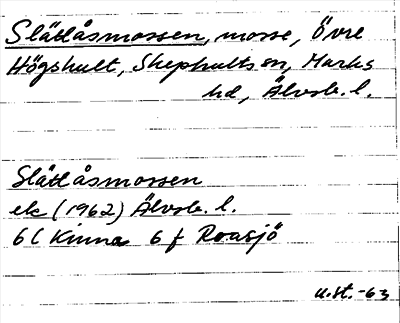 Slätlåsmossen, mosse, Övre
Högshult, Skephults sn, Marks
hd, Älvsb. l.
Slätlåsmossen
ek (1962) Älvsb. l.
6C Kinna 6 f Roasjö
u.st. -63